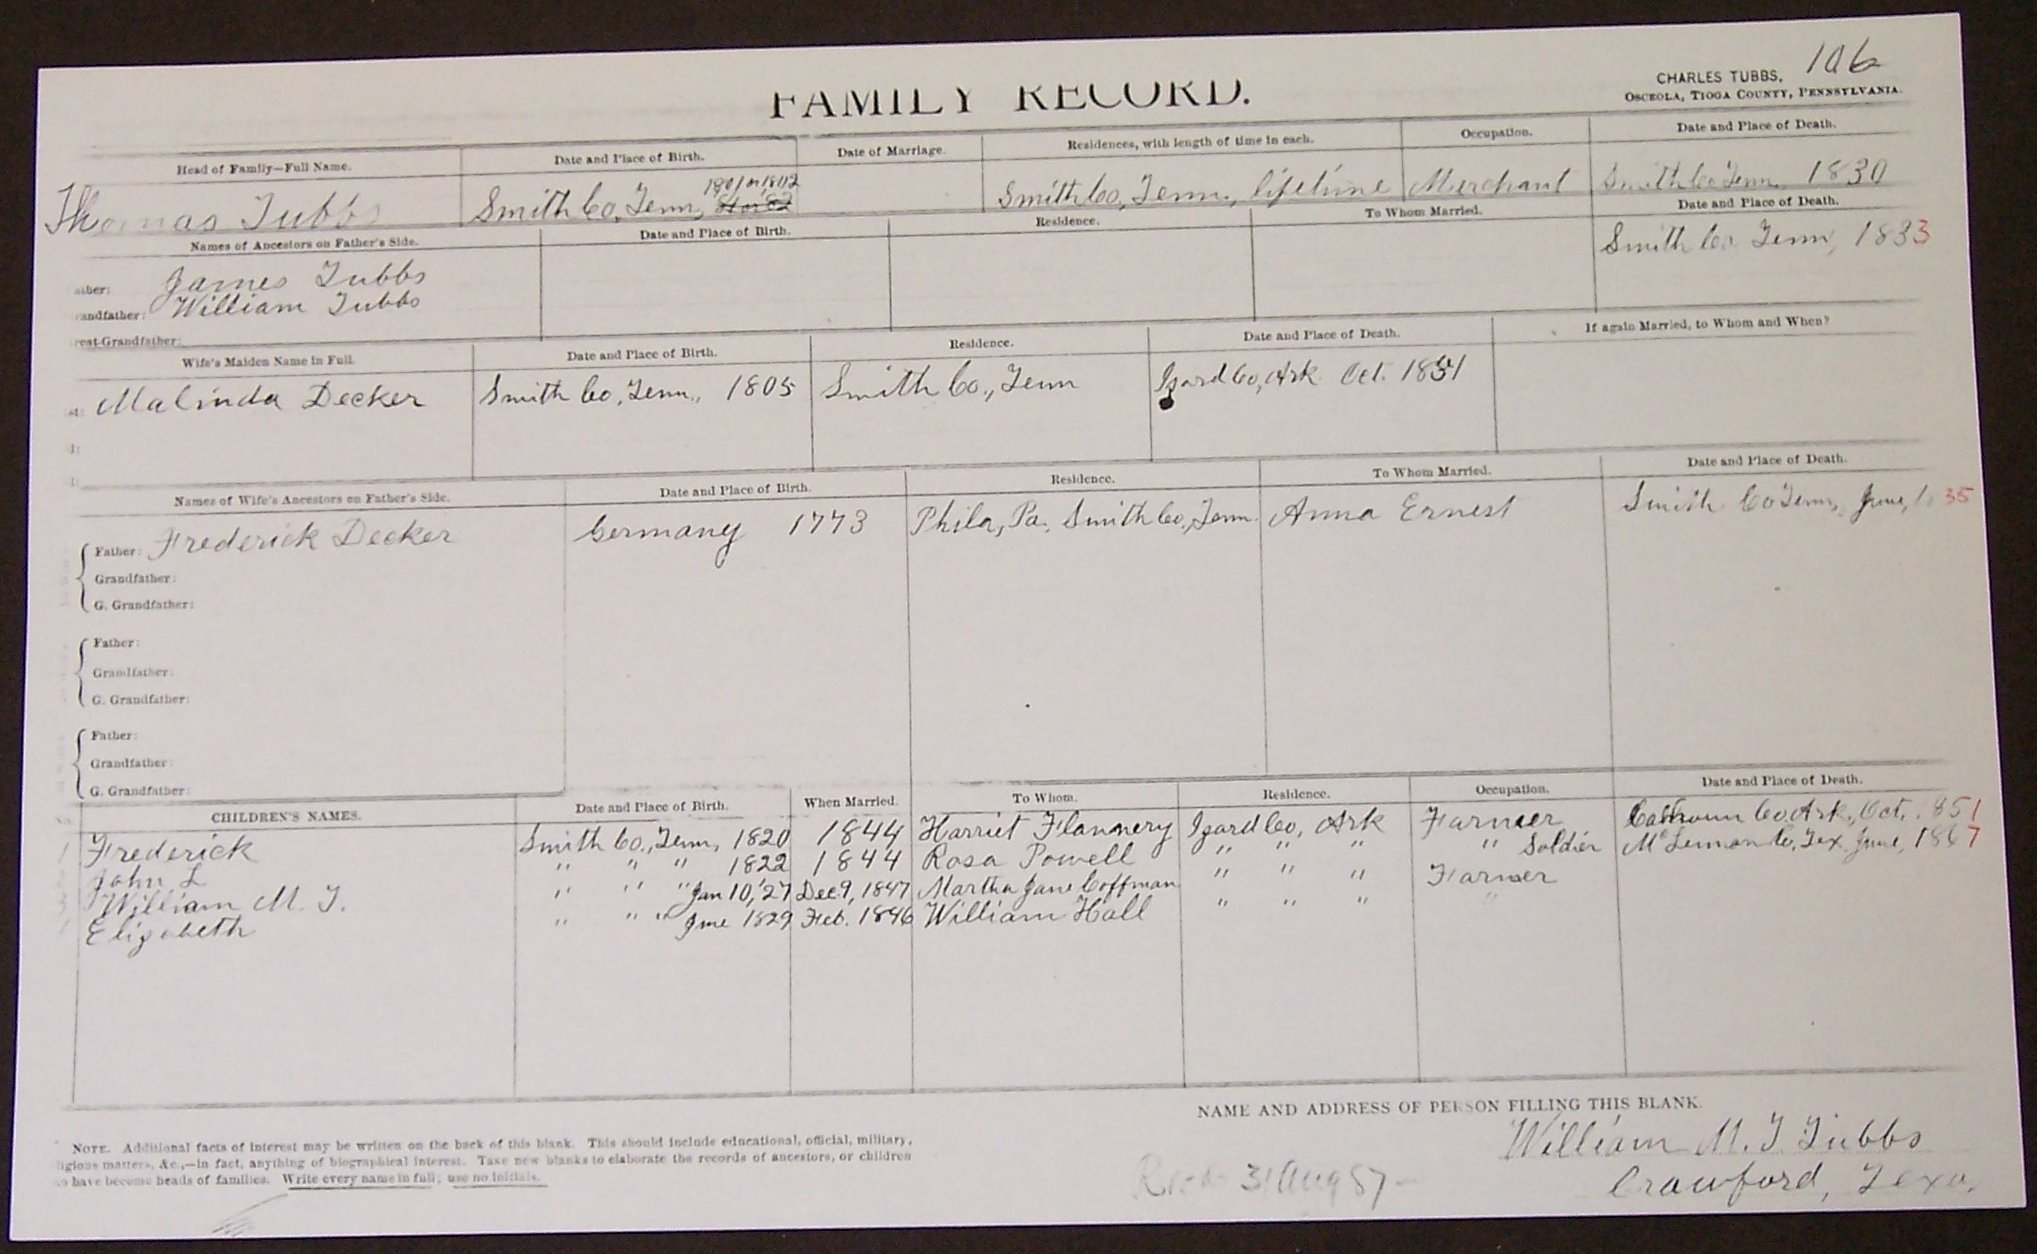 106
CHARLES TUBBS,
OSCEOLA, TIOGA COUNTY, PENNSYLVANIA.
FAMILY RECORD.
Head of Family—Full Name. Date and Place of Birth. Date of Marriage. Residences, with length of time in each. Occupation. Date and Place of Death.
1801 or 1802
Thomas Tubbs Smith Co, Tenn, Smith Co, Tenn., lifetime Merchant Smith Co Tenn. 1830
Names of Ancestors on Father's Side. Date and Place of Birth. Residence. To Whom Married. Date and Place of Death.
ather: James Tubbs Smith Co. Tenn, 1833
andfather: William Tubbs
reat-Grandfather:
Wife's Maiden Name in Full. Date and Place of Birth. Residence. Date and Place of Death. If again Married, to Whom and When?
st: Malinda Decker Smith Co, Tenn., 1805 Smith Co., Tenn Izard Co, Ark. Oct. 1851
d:
Names of Wife's Ancestors on Father's Side. Date and Place of Birth. Residence. To Whom Married. Date and Place of Death.
Father: Frederick Decker Germany 1773 Phila, Pa. Smith Co, Tenn. Anna Ernest Smith Co Tenn, June, 1835
Grandfather:
G. Grandfather:
Father:
Grandfather:
G. Grandfather:
Father:
Grandfather:
G. Grandfather:
CHILDREN'S NAMES. Date and Place of Birth. When Married. To Whom. Residence. Occupation. Date and Place of Death.
1 Frederick Smith Co., Tenn, 1820 1844 Harriet Flannery Izard Co, Ark Farmer Calhoun Co. Ark, Oct, 1851
John L " " " 1822 1844 Rosa Powell " " " " Soldier McLennan Co, Tex. June, 1867
3 William M. T. " " " Jan 10, '27 Dec 9, 1847 Martha Jane Coffman " " " Farmer
Elizabeth " " " June 1829 Feb. 1846 William Hall " " " "
NAME AND ADDRESS OF PERSON FILLING THIS BLANK.
William M. T Tubbs
Crawford, Texa.
NOTE. Additional facts of interest may be written on the back of this blank. This should include educational, official, military,
ligious matters, &c.,—in fact, anything of biographical interest. Take new blanks to elaborate the records of ancestors, or children
o have become heads of families. Write every name in full; use no initials.
31 Aug 87